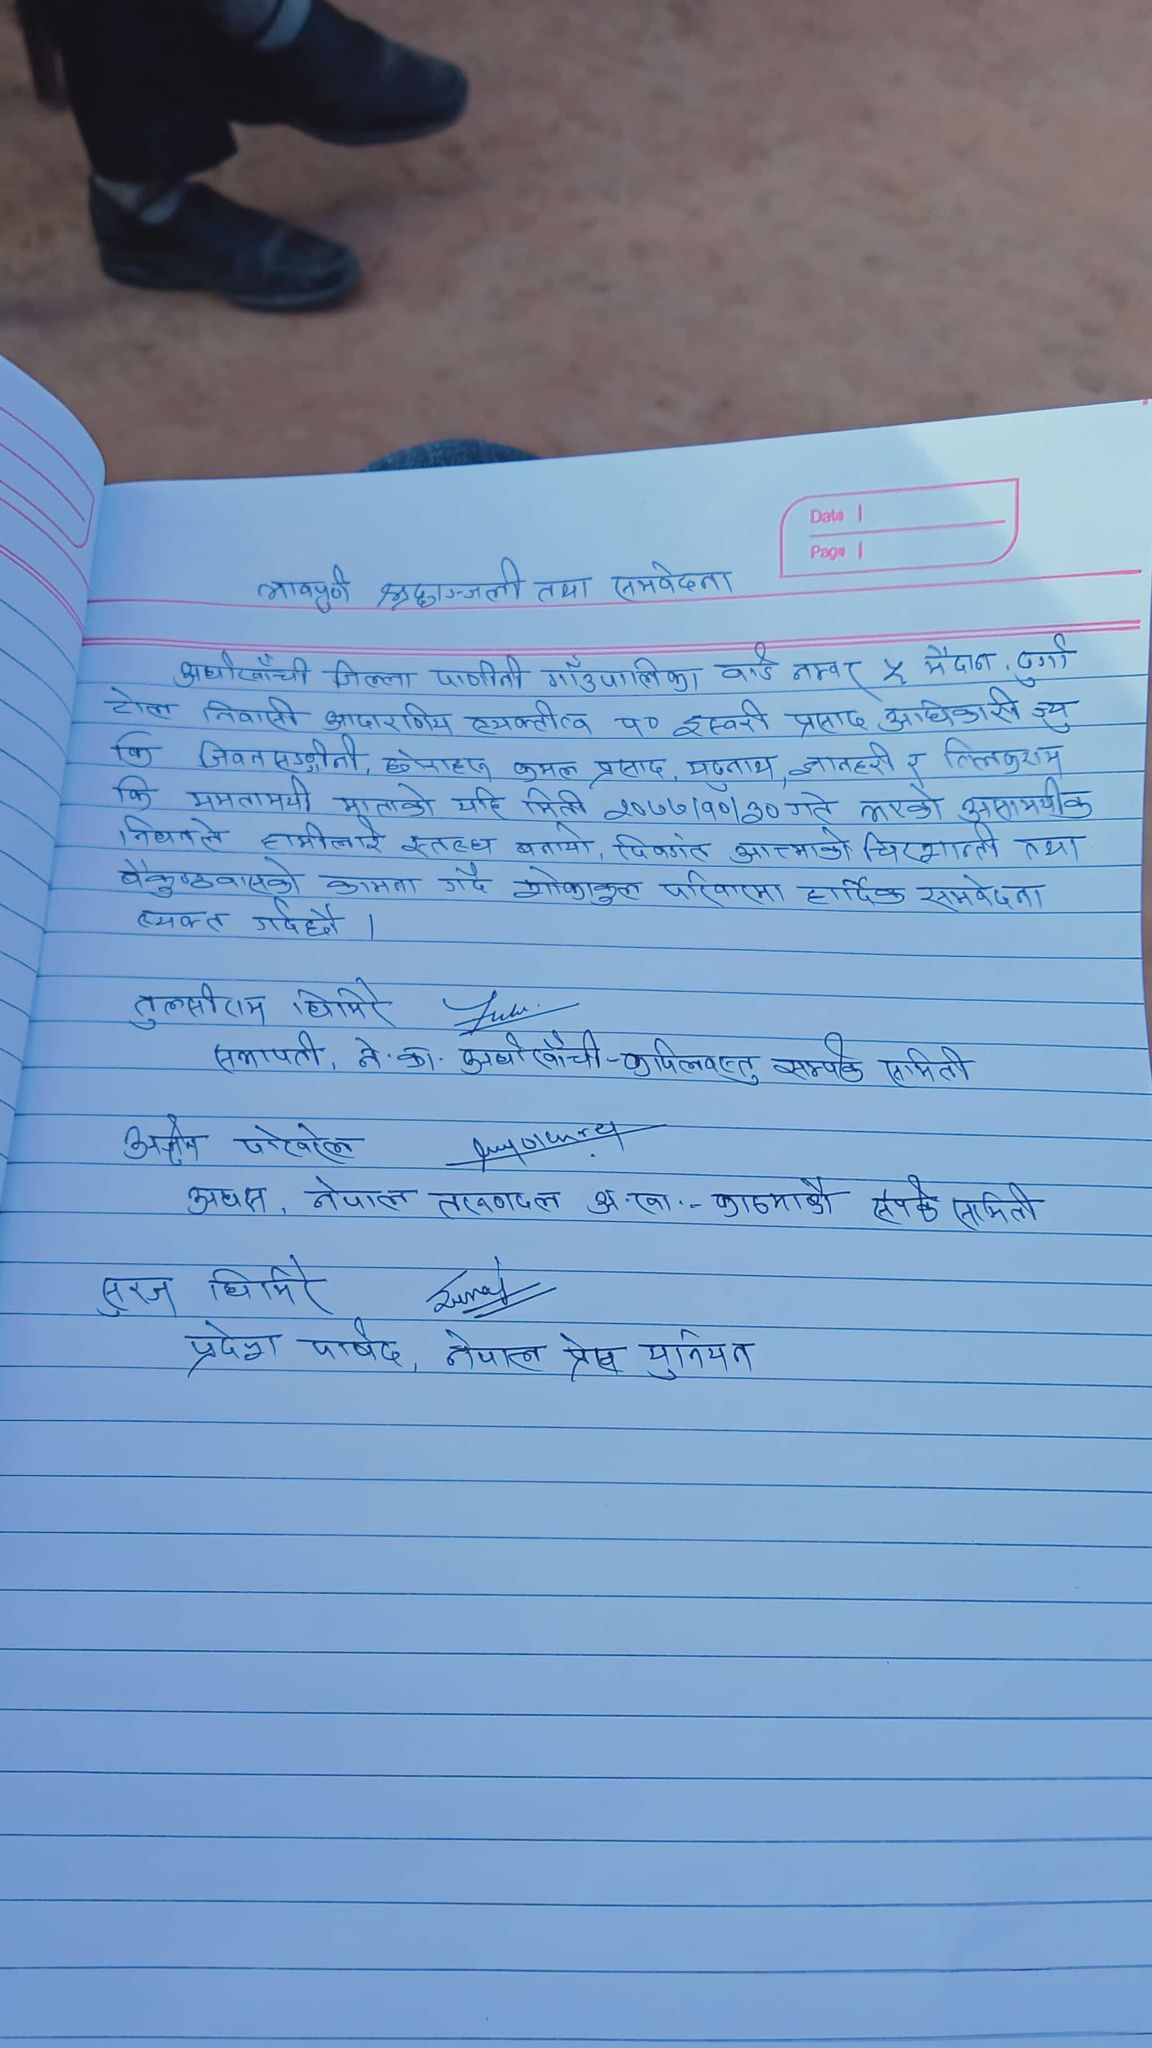 Date
Page
भावपुर्ण श्रद्धाञ्जली तथा समवेदना
अर्घाखाँची जिल्ला पाणीनी गाँउपालिका वार्ड नम्बर ५ मैदान, दुर्गा
टोल निवासी आदारणिय व्यक्तीत्व प० इस्वरी प्रसाद अधिकारी ज्यु
कि जिवनसङ्गीनी, छोराहरु कमल प्रसाद, यदुनाथ, ज्ञानहरी र
कि ममतामयी माताको यहि मिती २०७७/१०/३० गते भएको असामयीक
निधनले हामीलाई स्तब्ध बनायो, दिवगंत आत्माको चिरशान्ती तथा
बैकुण्ठवासको कामना गर्दै शोकाकुल परिवारमा हार्दिक समवेदना
व्यक्त गर्दछौ ।
तुल्सीराम घिमिरे
सभापती, ने.का. अर्घाखाँची-कपिलवस्तु सम्पर्क समिती
अर्जुन पोखरेल
अध्यक्ष, नेपाल तरुणदल अ.खा.- काठमाडौ संपर्क समिती
सुरज घिमिरे Suraj
प्रदेश पार्षद, नेपाल प्रेस युनियन